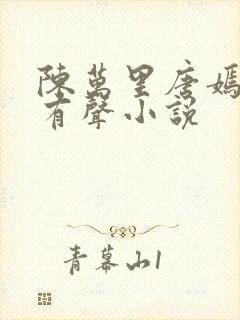 陳萬里唐嫣
有聲小說
青幕山1